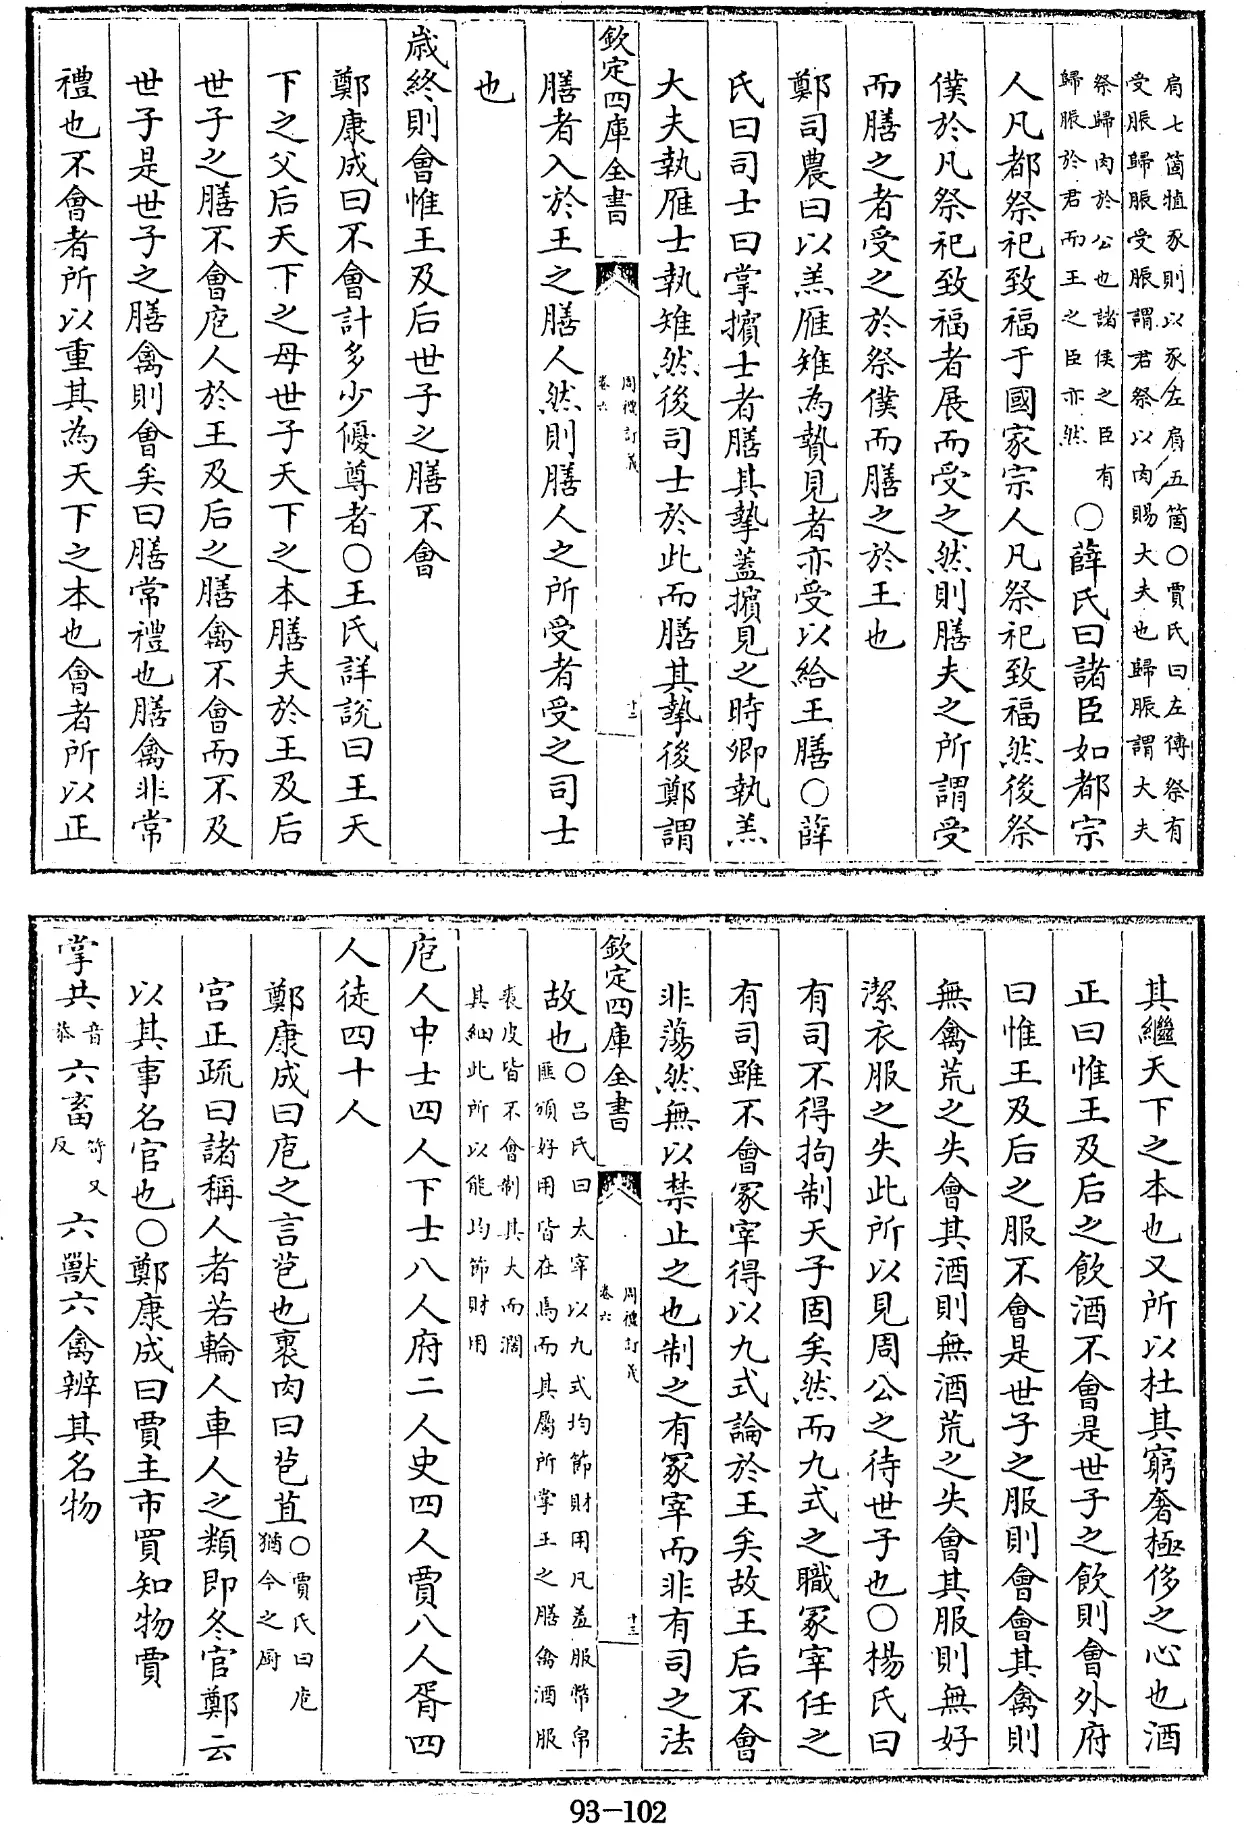 肩七箇犆豕則以豕左肩五箇○賈氏曰左傳祭有
受脤歸脤受脤謂君祭以肉賜大夫也歸脤謂大夫
祭歸肉於公也諸侯之臣有
歸脤於君而王之臣亦然
○薛氏曰諸臣如都宗
人凡都祭祀致福于國家宗人凡祭祀致福然後祭
僕於凡祭祀致福者展而受之然則膳夫之所謂受
而膳之者受之於祭僕而膳之於王也
鄭司農曰以羔雁雉為贄見者亦受以給王膳○薛
氏曰司士曰掌擯士者膳其摯蓋擯見之時卿執羔
大夫執雁士執雉然後司士於此而膳其摯後鄭謂
欽定四庫全書
周禮訂義
卷六
十二
膳者入於王之膳人然則膳人之所受者受之司士
也
歲終則會惟王及后世子之膳不會
鄭康成曰不會計多少優尊者○王氏詳說曰王天
下之父后天下之母世子天下之本膳夫於王及后
世子之膳不會庖人於王及后之膳禽不會而不及
世子是世子之膳禽則會矣曰膳常禮也膳禽非常
禮也不會者所以重其為天下之本也會者所以正
其繼天下之本也又所以杜其窮奢極侈之心也酒
正曰惟王及后之飲酒不會是世子之飲則會外府
曰惟王及后之服不會是世子之服則會會其禽則
無禽荒之失會其酒則無酒荒之失會其服則無好
潔衣服之失此所以見周公之待世子也○楊氏曰
有司不得拘制天子固矣然而九式之職冢宰任之
有司雖不會冢宰得以九式論於王矣故王后不會
非蕩然無以禁止之也制之有冢宰而非有司之法
欽定四庫全書
周禮訂義
卷六
十三
故也
○呂氏曰太宰以九式均節財用凡羞服幣帛
匪頒好用皆在焉而其屬所掌王之膳禽酒服
裘皮皆不會制其大而濶
其細此所以能均節財用
庖人中士四人下士八人府二人史四人賈八人胥四
人徒四十人
鄭康成曰庖之言苞也裹肉曰苞苴
○賈氏曰庖
猶今之厨
宫正疏曰諸稱人者若輪人車人之類即冬官鄭云
以其事名官也○鄭康成曰賈主市買知物賈
掌共
音恭
六畜
許又反
六獸六禽辨其名物
93-102